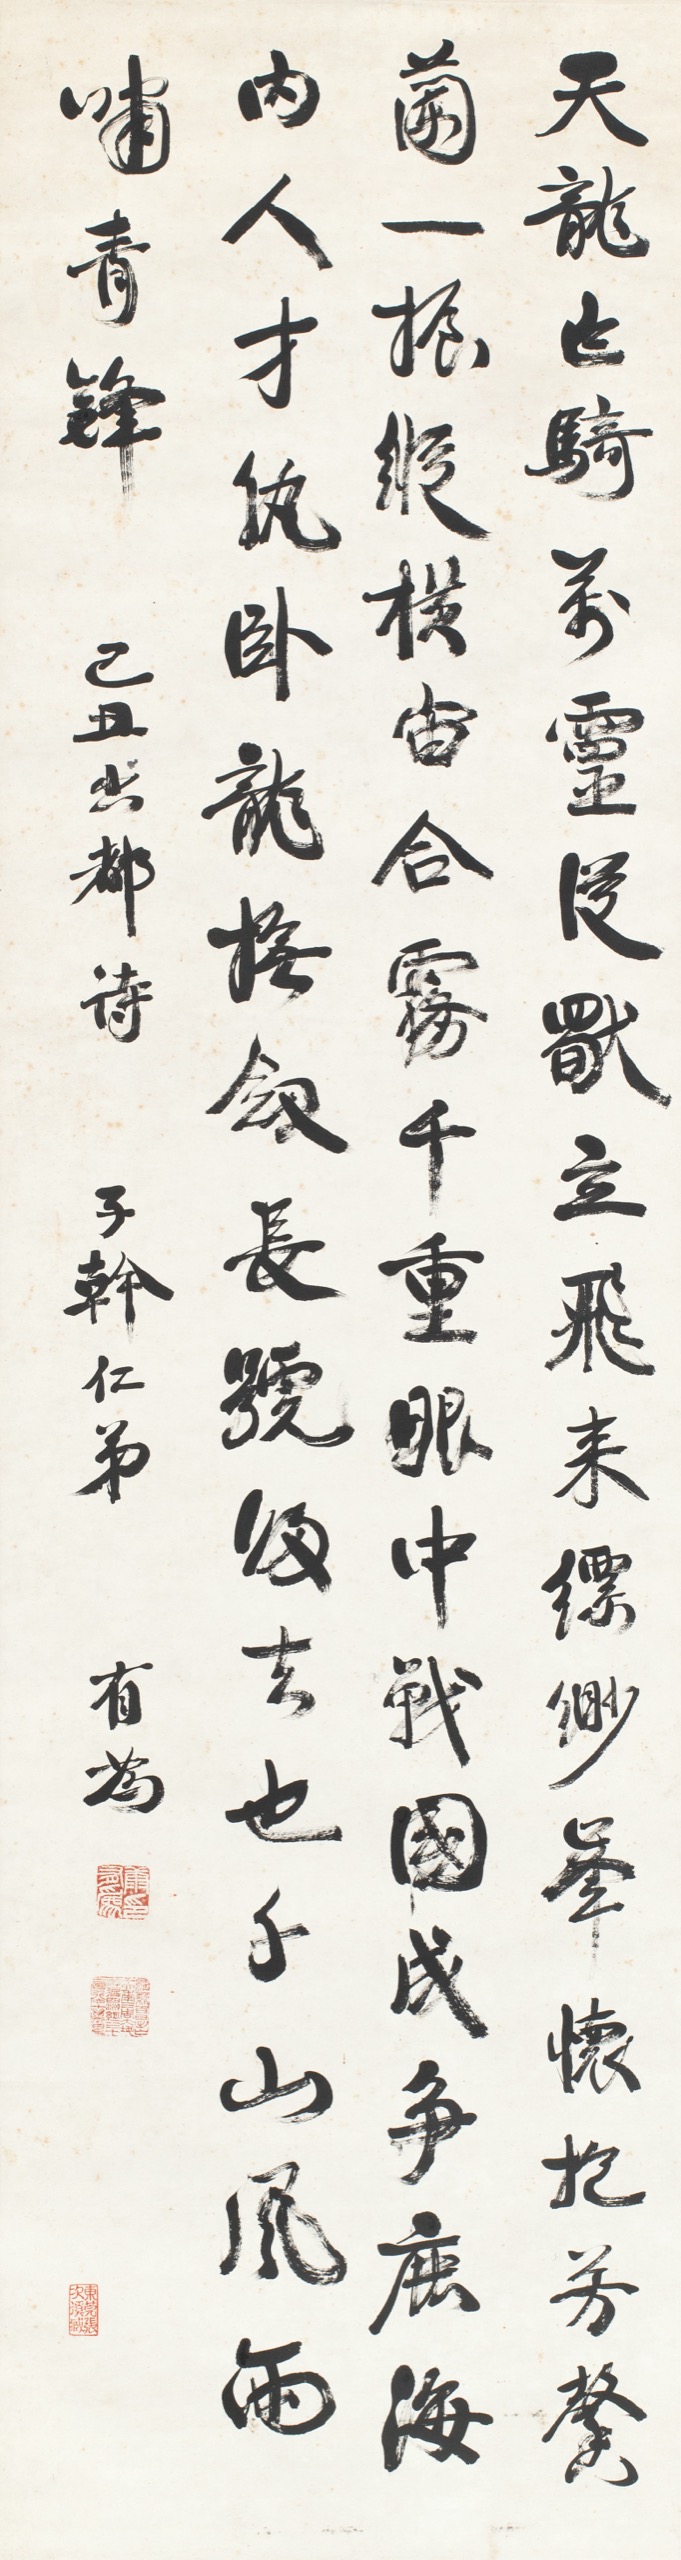 天龍已騎萬靈從獸立飛来縹緲峯懷抱芳馨
蘭一握縱橫宙合霧千重眼中戰國成争鹿海
内人才孰卧龍撫劍長號歸去也千山風雨
嘯青鋒 己丑出都詩 子幹仁弟 有為
康有為印